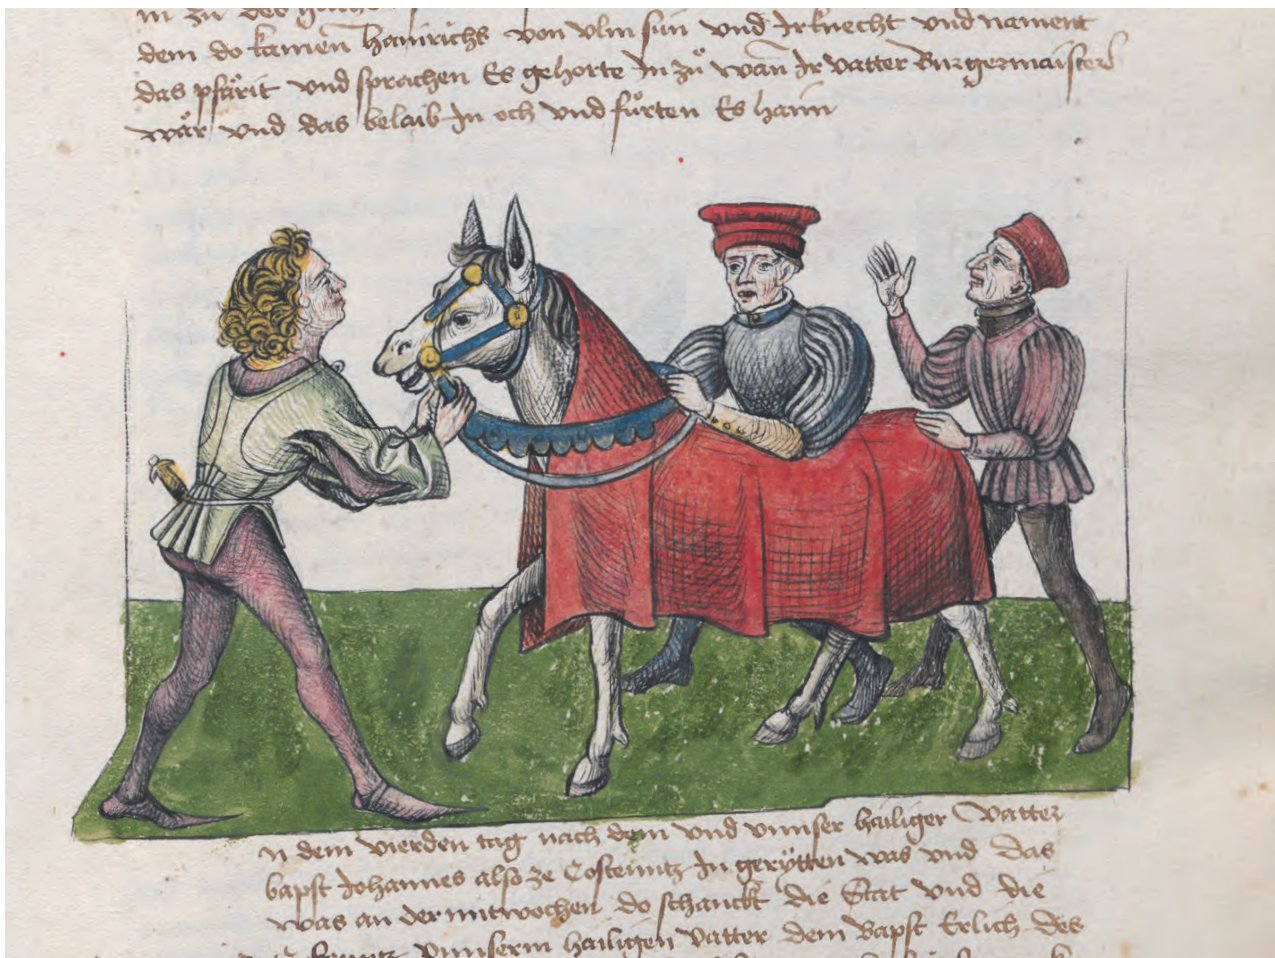 in zu des
dem do kamen hainrichs von vlm sun und Ir knecht und nament
das pfärit und sprachen Es gehorte In zů wan Ir vatter Burgermaister
wär vnd das belaib In och vnd fůrten Es haim
n dem vierden tag nach dem vnd vnnser hailiger Vatter
bapst Johannes also ze Costenntz In gerytten was vnd das
was an der mitwochen do schanckt die Stat vnd die
vnnserm hailigen vatter dem Bapst Erlich des